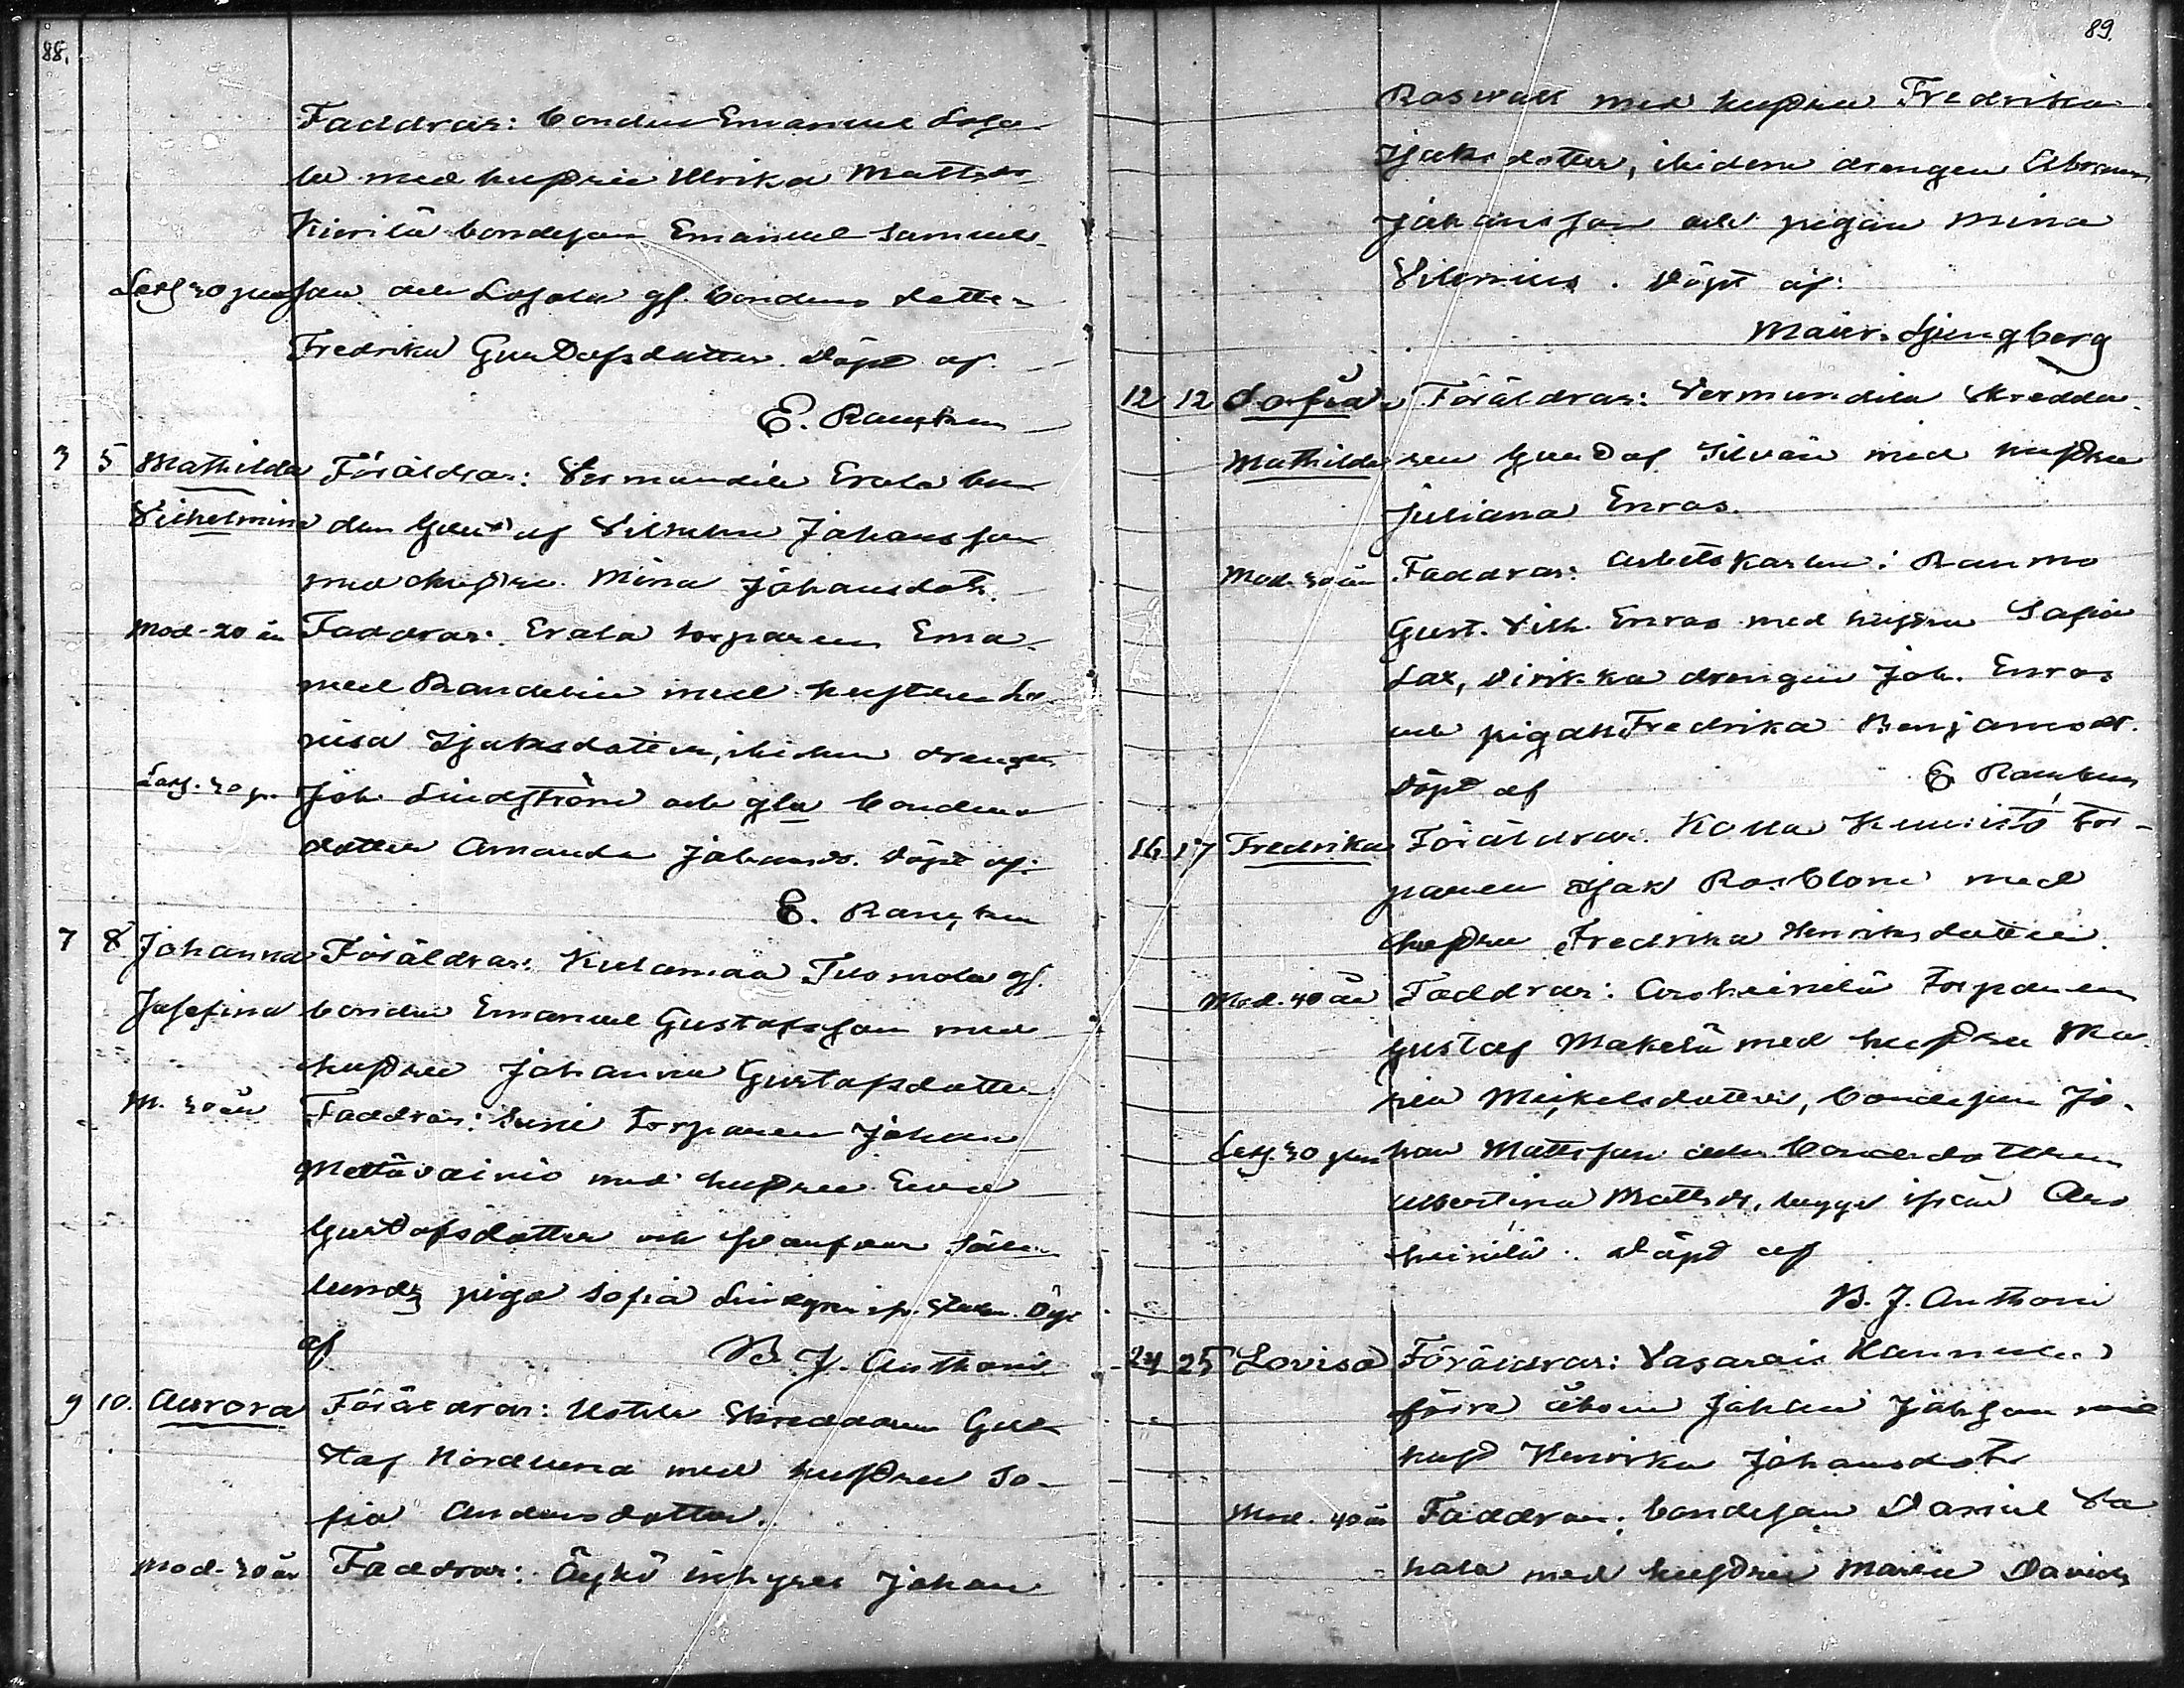 88.
Faddrar: bonden Emanuel Loja-
la med hustru Ulrika Mattsdr
Kierilä bondeson Emanuel Samuels-
son och Lojala gl. bondens dotter
Fredrika Gustafsdotter. Döpt af.
E. Rancken
3 5 Mathilda Föräldrar: Vermundila Erola bon
Vilhelmina den Gustaf Vilhelm Johansson
med hustru Mina Johansdotr.
Mod. 20 år Faddrar: Erola torparen Ema-
nuel Randelin med hustrun Lo-
visa Isaksdotter, ibidem drengen
Joh. Lindström och gla bondens
dotter Amanda Johansdr. Döpt af:
E. Rancken
7 8 Johanna Föräldrar: Kulamaa Tuomola gl.
Josefina bonden Emanuel Gustafsson med
hustru Johanna Gustafsdotter
M. 30 år Faddrar: torparen Johan
Mettävainio med hustru Eva
Gustafsdotter och
lunds piga Sofia Lindgren Döpt
af B. J. Anthoni
9 10. Aurora Föräldrar: Ustila Skreddaren Gus-
taf Nordlund med hustru So-
fia Andersdotter.
Mod. 30 år Faddrar: Äyhö inhyses Johan
89.
Roswall med hustru Fredrika
Isaksdotter, ibidem drengen Abram
Johansson och pigan Mina
Vilenius. Döpt af:
Maur. Ljungberg
12 12 Sofia Föräldrar: Vermundila Skredda-
Mathilda ren Gustaf Silvän med hustru
Juliana Enros.
Mod. 30 år Faddrar: arbetskarlen: Raumo
Gust. Vilh. Enros med hustru Sofia
Lax, Dirikka drengen Joh. Enros
och pigan Fredrika Benjamsdr.
Döpt af E. Rancken
16 17 Fredrika Föräldrar: Kolla Kuuisto tor-
paren Isak Rosblom med
hustru Fredrika Henriksdotter.
Mod. 40 år Faddrar: Anoheinilä torparen
Gustaf Makelä med hustru Ma-
ria Mickelsdotter, bondeson Jo-
han Mattsson och bondedottren
Albertina Mattsdr, begge ifrån Ano
heinilä. Döpt af
B. J. Anthoni
24 25 Lovisa Föräldrar: Vasarais Hannula
förra åboen Johan Johsson med
hust Henrika Johansdotr
Mod. 40 år Faddrar: bondeson Daniel Va
hala med hustru Maria Davids